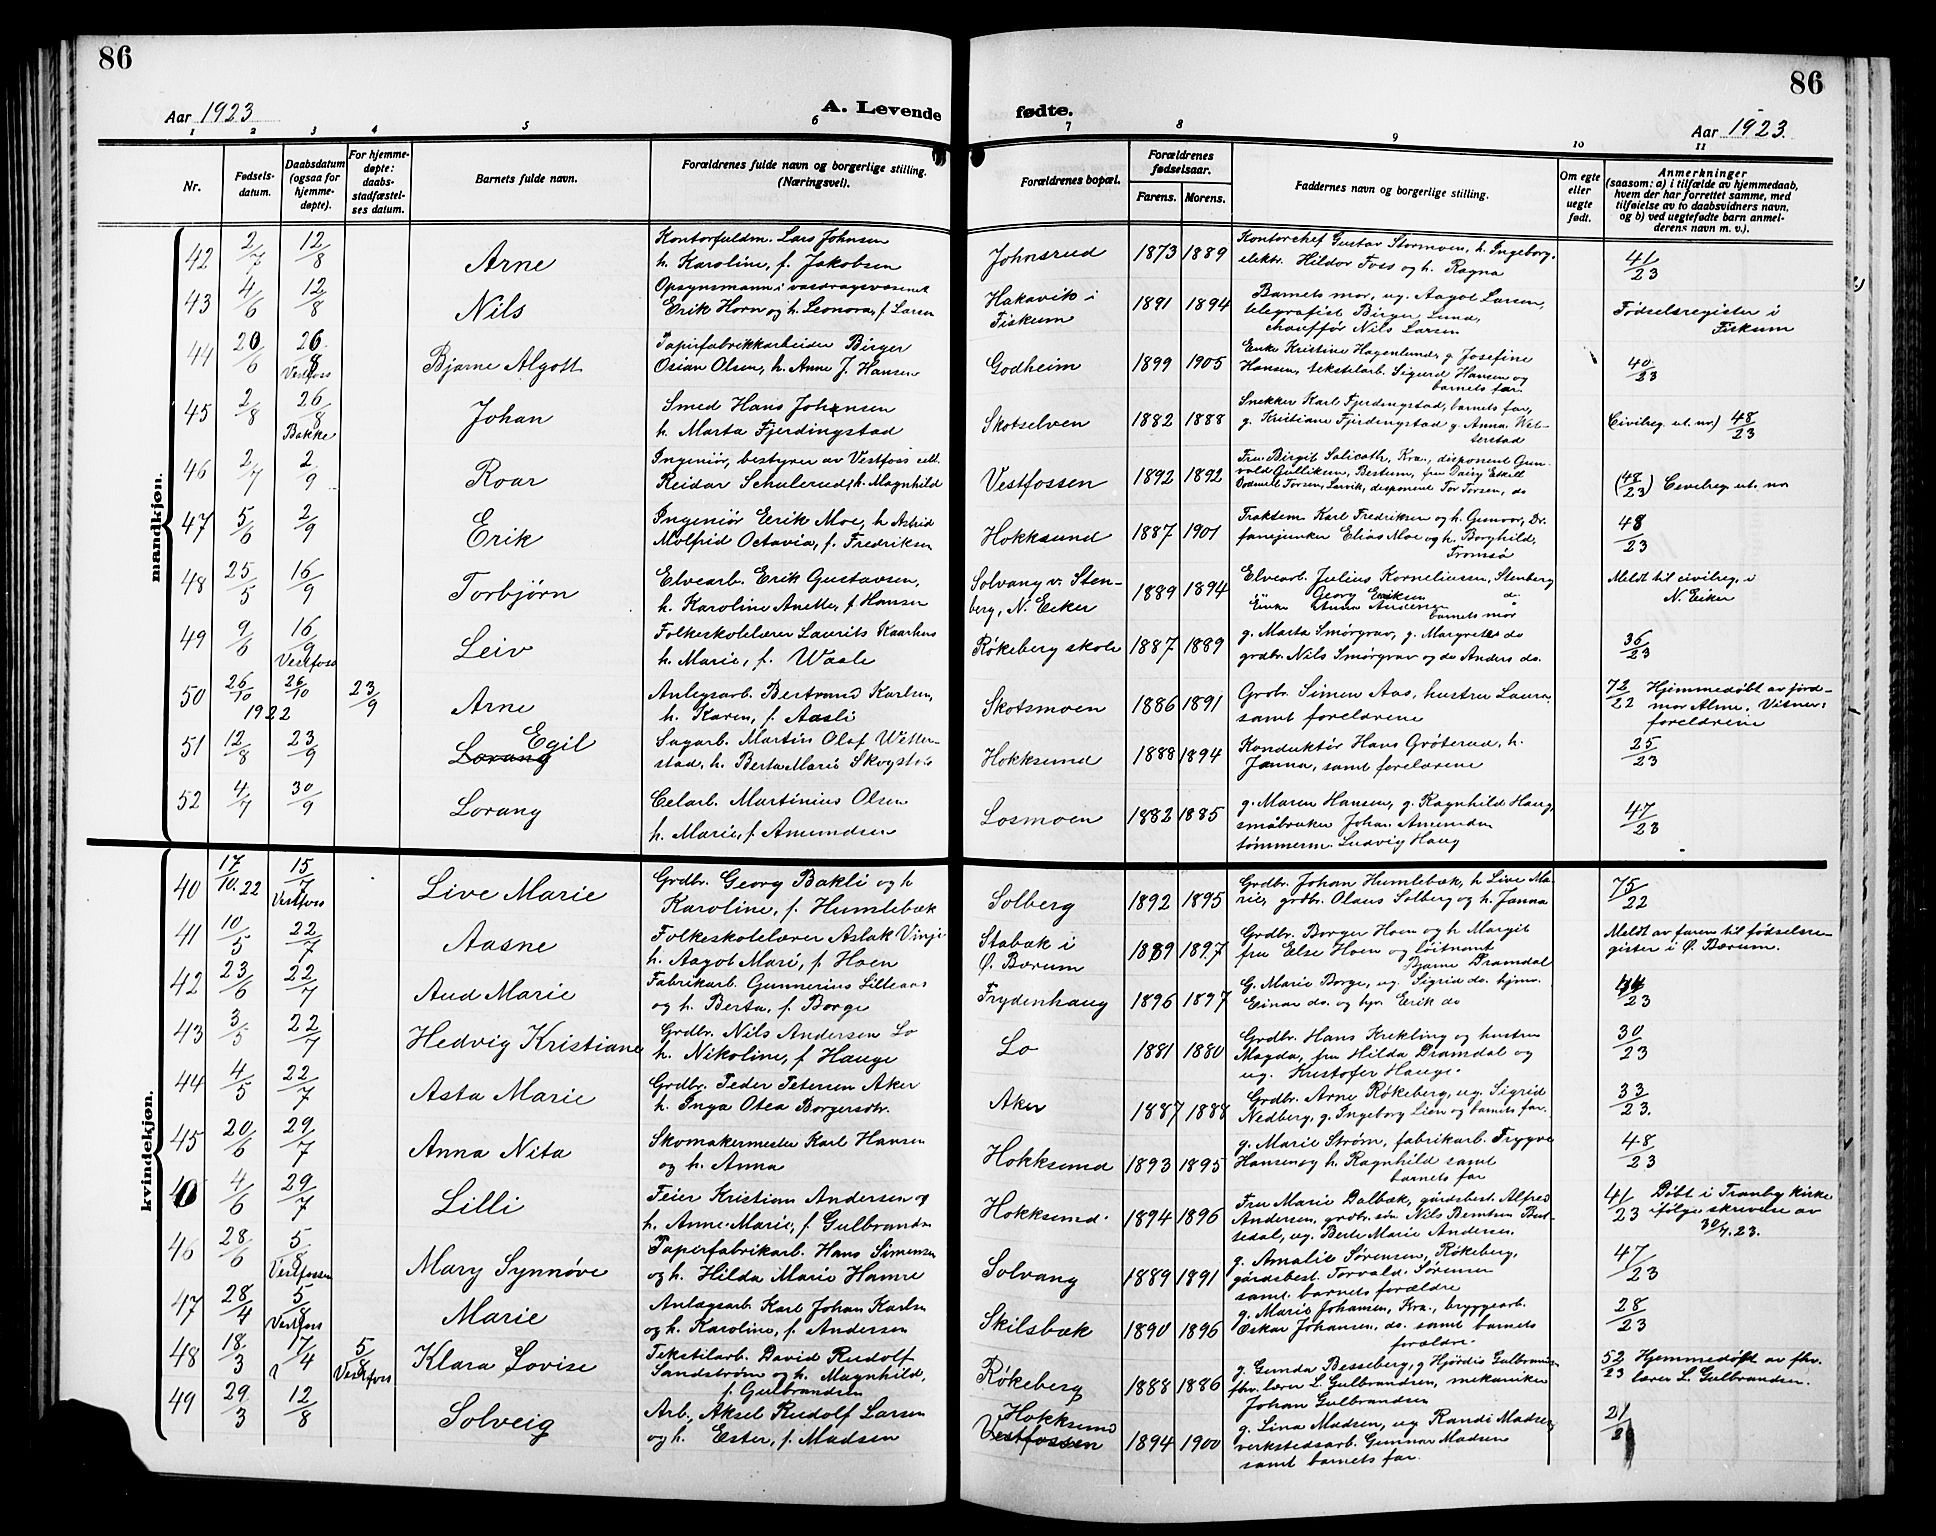 86
86
Aar 1923
A. Levende
fødte.
Aar 1923.
1 2 3 4 5 6 7 8 9 10 11
Nr.
Fødsels-
datum.
Daabsdatum
(ogsaa for
hjemme-
døpte).
For hjemme-
døpte:
daabs-
stadfæstel-
ses datum.
Barnets fulde navn.
Forældrenes fulde navn og borgerlige stilling.
(Næringsvei).
Forældrenes bopæl.
Forældrenes
fødselsaar.
Farens. Morens.
Faddernes navn og borgerlige stilling.
Om egte
eller
uegte
født.
Anmerkninger
(saasom: a) i tilfælde av hjemmedaab,
hvem der har forrettet samme, med
tilføielse av to daabsvidners navn,
og b) ved uegtefødte barn anmel-
derens navn m. v.).
mandkjøn.
42 2/7 12/8 Arne
Kontorfuldm. Lars Johnsen
h. Karoline, f. Jakobsen
Johnsrud 1873 1889
Kontorchef Gustav Stormoen, h. Ingeborg,
elektr. Hildor Foss og h. Ragna
41/23
43 4/6 12/8 Nils
Opsynsmann i vasdragsvesenet
Erik Horn og h. Leonora, f. Larsen
Hakavik i
Fiskum
1891 1894
Barnets mor, ug. Aagot Larsen,
telegrafist Birger Lund,
chauffør Nils Larsen
Fødselsregister i
Fiskum
44 20/6 26/8 Vestfoss Bjarne Algott
Papirfabrikkarbeider Birger
Osian Olsen, h. Anne J. Hansen
Godheim 1899 1905
Enke Kristine Hagenlund, g. Josefine
Hansen, tekstilarb. Sigurd Hansen og
barnets far.
40/23
45 2/8 26/8 Bakke Johan
Smed Hans Johansen
h. Marta Fjerdingstad
Skotselven 1882 1888
Snekker Karl Fjerdingstad, barnets far,
g. Kristiane Fjerdingstad g. Anna Wet-
terstad
Civilreg. ut. no) 48/23
46 2/7 2/9 Roar
Ingeniør, bestyrer av Vestfoss cell.
Reidar Schulerud, h. Magnhild
Vestfossen 1892 1892
Fru Birgit Salicath, Kra., disponent Gun-
vald Gulliksen, Bestum, fru Daisy Eskill
Torsen, Larvik, disponent Tor Torsen, do
(48/23) Civilreg. ut. no
47 5/6 2/9 Erik
Ingeniør Erik Moe, h Astrid
Molfrid Octavia, f. Fredriksen
Hokksund 1887 1901
Fraktem. Karl Fredriksen og h. Gunvor, Dr.
fanejunker Elias Moe og h. Borghild,
Tromsø
48/23
48 25/5 16/9 Torbjørn
Elvearb. Erik Gustavsen,
h. Karoline Anette, f. Hansen
Solvang v. Sten-
berg, N. Eiker
1889 1894
Elvearb. Julius Korneliussen, Stenberg
" Georg Eriksen do.
Enke Anna Andersen
barnets mor
Meldt til civilreg. i
N. Eiker
49 9/6 16/9 Vestfoss Leiv
Folkeskolelærer Laurits Kaarhus
h. Marie, f. Waale
Røkeberg skole 1887 1889
g. Marta Smørgrav, g. Margrete do
grdbr. Nils Smørgrav og do Anders do.
36/23
50 26/10 1922 26/10 23/9 Arne
Anlegsarb. Bertrand Karlsen,
h. Karen, f. Aasli
Skotsmoen 1886 1891
Grdbr. Simen Aas, hustru Laura
samt forældrene
72/22 Hjemmedøbt av jord-
mor Alme. Vitner:
forældrene
51 12/8 23/9 Egil
Lorang
Sagarb. Martin Olaf Wetter-
stad, h. Berta Marie Skogstø
Hokksund 1888 1894
Konduktør Hans Grøterud, h.
Janna, samt forældrene
25/23
52 4/7 30/9 Lorang
Celarb. Martinius Olsen
h. Marie, f Amundsen
Losmoen 1882 1885
g. Maren Hansen, g. Ragnhild Haug,
småbruker Johan Amundsen
tømmerm. Ludvig Haug
47/23
kvindekjøn.
40 17/10.22 15/7 Vestfoss Live Marie
Grdbr. Georg Bakli og h
Karoline, f. Humlebæk
Solberg 1892 1895
Grdbr. Johan Humlebæk, h Live Ma-
rie, grdbr. Olaus Solberg og h. Janna
75/22
41 10/5 22/7 Aasne
Folkeskolelærer Aslak Vinje
h. Aagot Marie, f. Hoen
Stabæk i
Ø. Bærum
1889 1897
Grdbr. Borger Hoen og h Margit
fru Else Hoen og løitnant
Bjarne Dramdal
Meldt av faren til fødselsre-
gister i Ø. Bærum.
42 23/6 22/7 Aud Marie
Fabrikarb. Gunnerius Lilleaas
og h. Berta, f. Borge
Frydenhaug 1896 1897
G. Marie Borge, ug. Sigrid do. hjmv.
Einar do. og hjv. Erik do
44/23
43 3/5 22/7 Hedvig Kristiane
Grdbr. Nils Andersen Lo
h. Nikoline, f Hauge
Lo 1881 1880
Grdbr. Hans Krekling og hustru
Magda, fru Hilda Dramdal og
ug. Kristofer Hauge.
30/23
44 4/5 22/7 Asta Marie
Grdbr. Peder Petersen Aker
h. Inga Otea Borgersdtr.
Aker 1887 1888
Grdbr. Arne Røkeberg, ug. Sigrid
Nedberg, g. Ingeborg Lien og barnets far.
33/23.
45 20/6 29/7 Anna Nita
Skomakermester Karl Hansen
og h. Anna
Hokksund 1893 1895
g. Marie Strøm, fabrikarb. Trygve
Hansen og h. Ragnhild samt
barnets far
48/23
4/6 29/7 Lilli
Feier Kristian Andersen og
h. Anne-Marie, f Gulbrandsn
Hokksund. 1894 1896
Fru Marie Dalbæk, gårdsbest. Alfred
Andersen, grdbr. søn Nils Berntsen Bus-
sedal, ug. Berte Marie Andersen.
41/23 Døbt i Tranby kirke
ifølge skrivelse av
30/7.23.
46 28/6 5/8 Vestfossen Mary Synnøve
Papirfabrikarb. Hans Simensen
og h. Hilda Marie Hamre
Solvang 1889 1891
g. Amalie Sørensen, Røkeberg,
gårdsbest. Torvald Sørensen
samt barnets forældre
47/23
47 28/4 5/8 Vestfoss Marie
Anlægsarb. Karl Johan Karlsen
og h. Karoline, f. Andersen
Skilsbæk 1890 1896
g. Marie Johansen, Kra., bryggearb.
Oskar Johansen, do. samt barnets
forældre.
28/23
48 18/3 17/4 5/8 Vestfoss Klara Lovise
Tekstilarb. David Rudolf
Sandstrøm og h. Magnhild,
f. Gulbrandsen
Røkeberg 1888 1886
g. Gunda Besseberg, g Hjørdis Gulbrandsen
fhv. lærer L. Gulbrandsen, mekaniker
Johan Gulbrandsen
52/23 Hjemmedøbt av fhv.
lærer L. Gulbrandsen.
49 29/3 12/8 Solveig
Arb. Aksel Rudolf Larsen
og h. Ester, f. Madsen
Hokksund
Vestfossen
1894 1900
g. Lina Madsen, ug Randi Madsen,
verkstedsarb. Gunnar Madsen
samt barnets far.
21/2